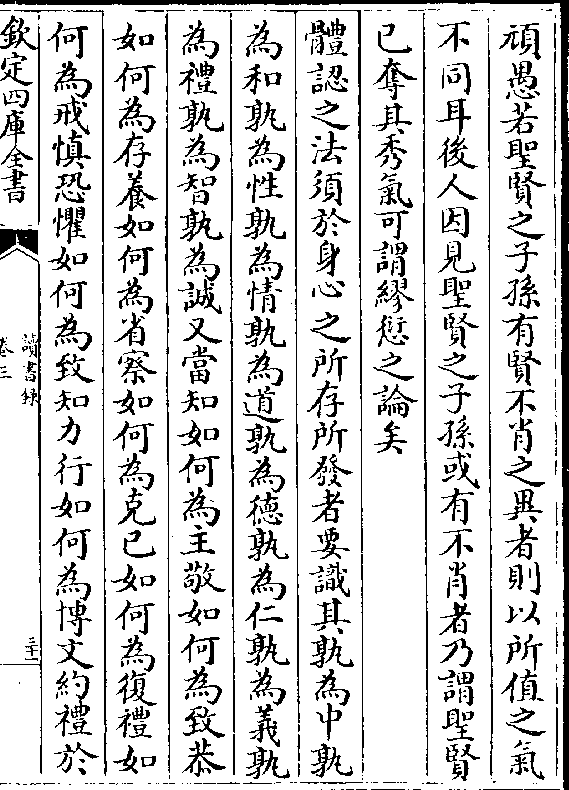 頑愚若聖賢之子孫有賢不肖之異者則以所值之氣
不同耳後人因見聖賢之子孫或有不肖者乃謂聖賢
已奪其秀氣可謂繆愆之論矣
體認之法須於身心之所存所發者要識其孰為中孰
為和孰為性孰為情孰為道孰為德孰為仁孰為義孰
為禮孰為智孰為誠又當知如何為主敬如何為致恭
如何為存養如何為省察如何為克己如何為復禮如
何為戒慎恐懼如何為致知力行如何為博文約禮於
欽定四庫全書
讀書録
卷三
三十一